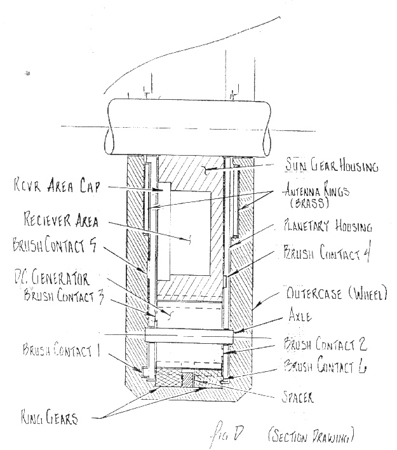 SUN GEAR HOUSING
RCVR AREA CAP
ANTENNA RINGS
(BRASS)
RECIEVER AREA
PLANETARY HOUSING
BRUSH CONTACT 5
BRUSH CONTACT 4
D.C. GENERATOR
BRUSH CONTACT 3
OUTERCASE (WHEEL)
AXLE
BRUSH CONTACT 1
BRUSH CONTACT 2
BRUSH CONTACT 6
SPACER
RING GEARS
FIG D (SECTION DRAWING)